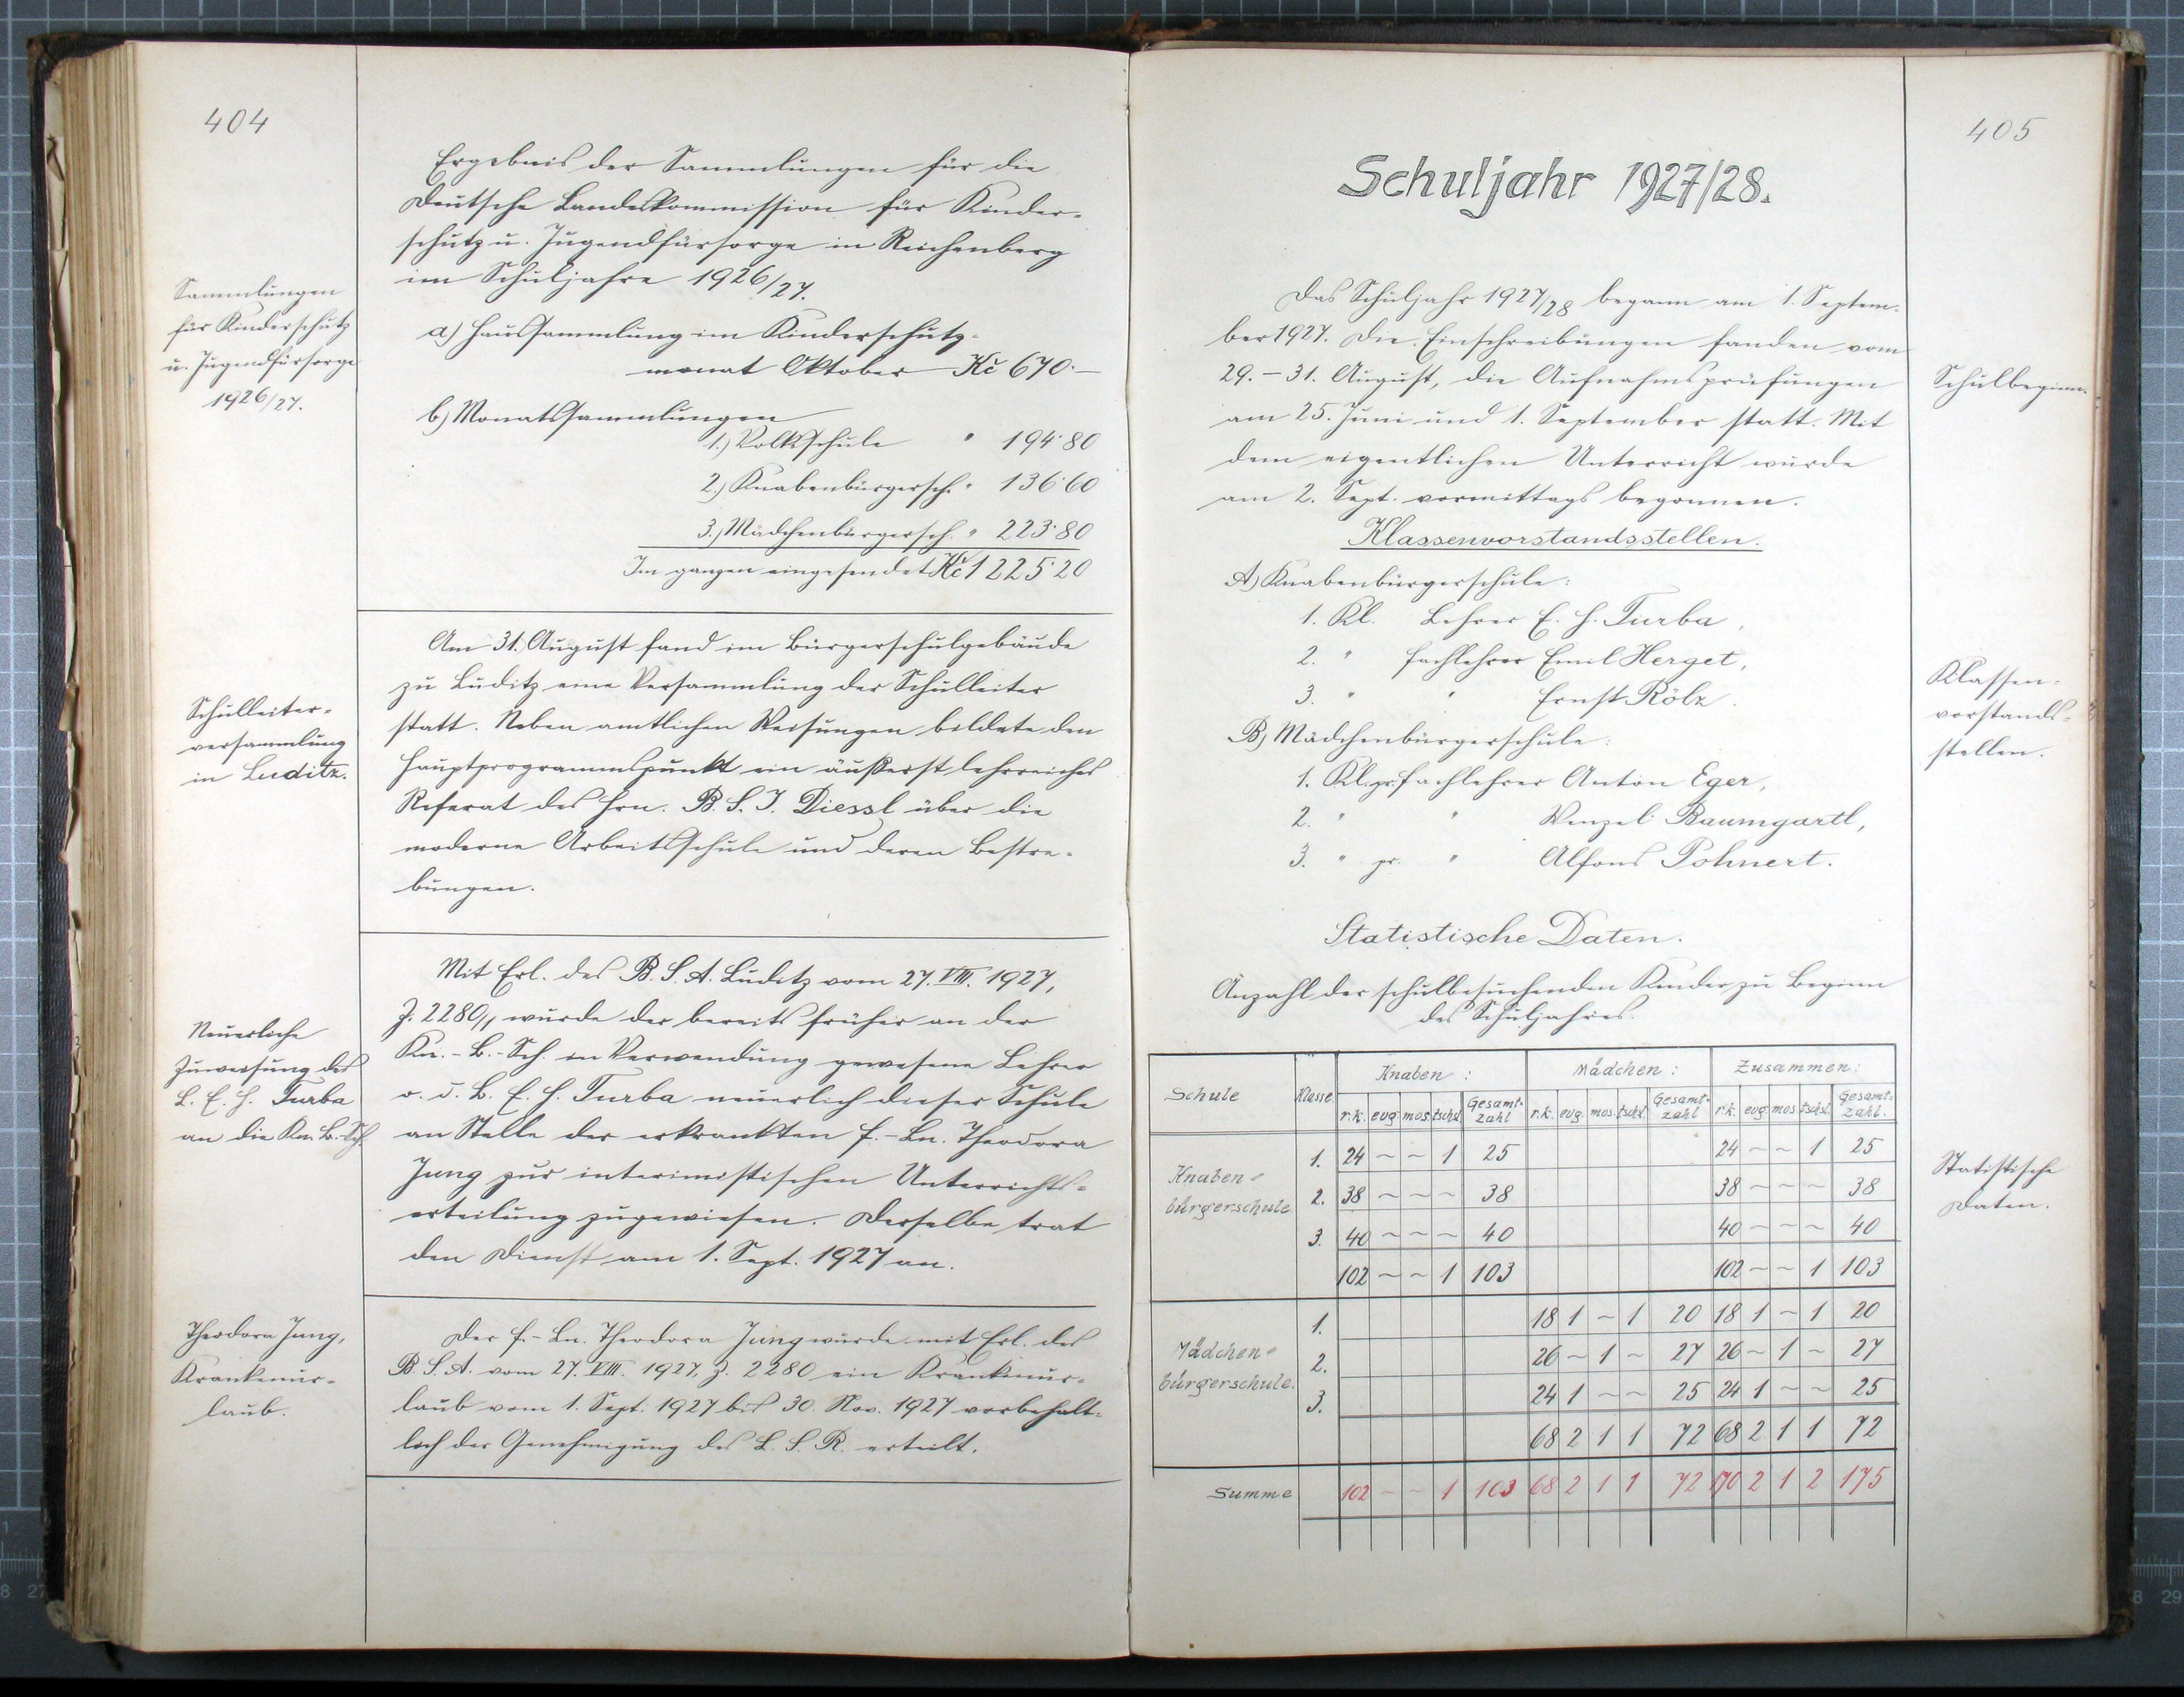 404
Ergebnis der Sammlungen für die
Deutsche Landeskommission für Kinder-
schutz u. Jugendfürsorge in Reichenberg
im Schuljahre 1926/27.
Sammlungen
für Kinderschutz
u. Jugendfürsorge
1926/27.
a) Haussammlung im Kinderschutz-
monat Oktober Kč 670·—
b) Monatssammlungen
1.) Volksschule " 194·80
2.) Knabenbürgersch. " 136·60
3.) Mädchenbürgersch. " 223·80
Im ganzen eingesendet Kč 1225·20
Am 31. August fand im Bürgerschulgebäude
zu Luditz eine Versammlung der Schulleiter
statt. Neben amtlichen Weisungen bildete den
Hauptprogrammspunkt ein äußerst lehrreiches
Referat des Hrn. B. S. J. Diessl über die
moderne Arbeitsschule und deren Bestre-
bungen.
Schulleiter-
versammlung
in Luditz.
Mit Erl. des B. S. A. Luditz vom 27. VIII. 1927,
Z. 2280/1 wurde der bereits früher an der
Kn.-B.-Sch. in Verwendung gewesene Lehrer
o. d. B. E. H. Turba neuerlich dieser Schule
an Stelle der erkrankten F.-Ln. Theodora
Jung zur interimistischen Unterrichts-
erteilung zugewiesen. Derselbe trat
den Dienst am 1. Sept. 1927 an.
Neuerliche
Zuweisung des
L. E. H. Turba
an die Kn. B.-Sch.
Der F.-Ln. Theodora Jung wurde mit Erl. des
B. S. A. vom 27. VIII. 1927, Z. 2280 ein Krankenur-
laub vom 1. Sept. 1927 bis 30. Nov. 1927 vorbehalt-
lich der Genehmigung des L. S. R. erteilt.
Theodora Jung,
Krankenur-
laub.
405
Schuljahr 1927/28.
Das Schuljahr 1927/28 begann am 1. Septem-
ber 1927. Die Einschreibungen fanden vom
29.-31. August, die Aufnahmsprüfungen
am 25. Juni und 1. September statt. Mit
dem eigentlichen Unterricht wurde
am 2. Sept. vormittags begonnen.
Schulbeginn.
Klassenvorstandsstellen.
A) Knabenbürgerschule:
1. Kl. Lehrer E. H. Turba,
2. " Fachlehrer Emil Herget,
3. " " Ernst Rölz.
B) Mädchenbürgerschule:
1. Kl. pr. Fachlehrer Anton Eger,
2. " " Wenzel Baumgartl,
3. " pr. " Alfons Pohnert.
Klassen-
vorstands-
stellen.
Statistische Daten.
Anzahl der schulbesuchenden Kinder zu Beginn
des Schuljahres.
Statistische
Daten.
Schule Klasse Knaben: Mädchen: Zusammen:
r.k. evg. mos. tschsl. Gesamt-zahl r.k. evg. mos. tschsl. Gesamt-zahl r.k. evg. mos. tschsl. Gesamt-zahl.
Knaben-
bürgerschule
1. 24 ~ ~ 1 25 24 ~ ~ 1 25
2. 38 ~ ~ ~ 38 38 ~ ~ ~ 38
3. 40 ~ ~ ~ 40 40 ~ ~ ~ 40
102 ~ ~ 1 103 102 ~ ~ 1 103
Mädchen-
bürgerschule.
1. 18 1 ~ 1 20 18 1 ~ 1 20
2. 26 ~ 1 ~ 27 26 ~ 1 ~ 27
3. 24 1 ~ ~ 25 24 1 ~ ~ 25
68 2 1 1 72 68 2 1 1 72
Summe 102 ~ ~ 1 103 68 2 1 1 72 170 2 1 2 175